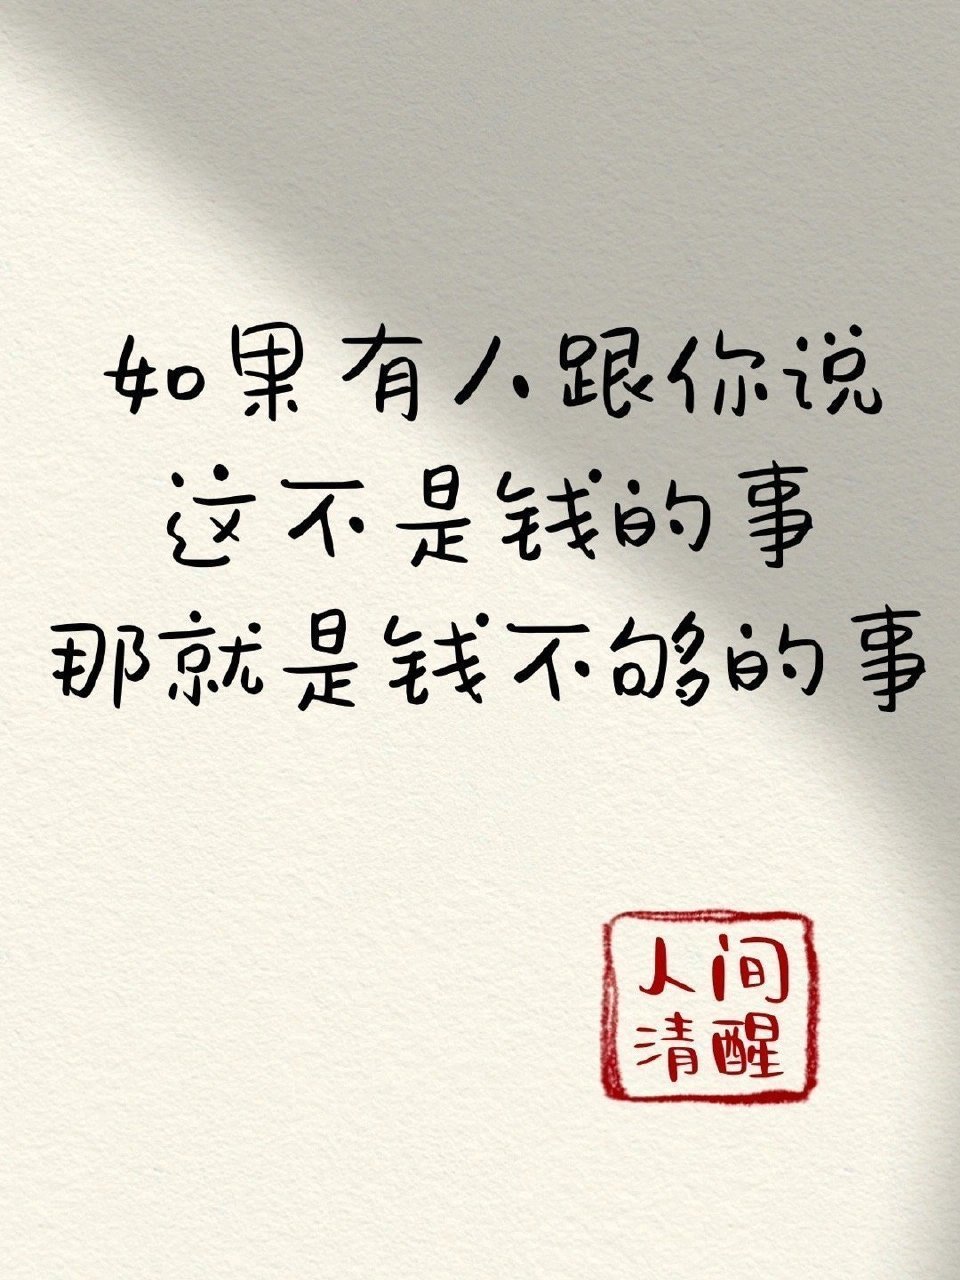 如果有人跟你说
这不是钱的事
那就是钱不够的事
人间
清醒